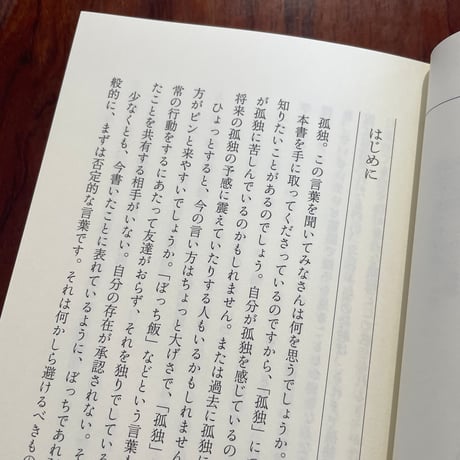 はじめに
孤独。この言葉を聞いてみなさんは何を思うでしょうか。
本書を手に取ってくださっているのですから、「孤独」に
知りたいことがあるのでしょう。自分が孤独を感じているの
が孤独に苦しんでいるのかもしれません。または過去に孤独に
将来の孤独の予感に震えていたりする人もいるかもしれません
ひょっとすると、今の言い方はちょっと大げさで、「孤独」
方がピンと来やすいでしょうか。「ぼっち飯」などという言葉
常の行動をするにあたって友達がおらず、それを独りでしている
たことを共有する相手がいない。自分の存在が承認されない。そ
少なくとも、今書いたことに表れているように、ぼっちであれ
般的に、まずは否定的な言葉です。それは何かしら避けるべきも